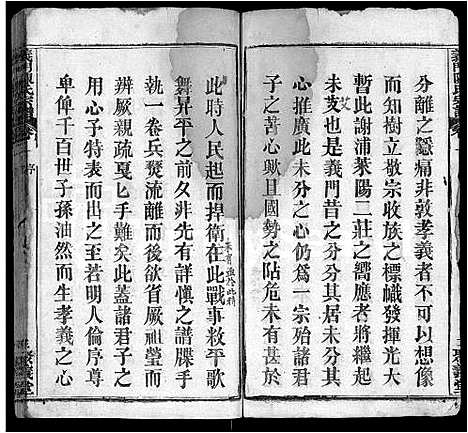 分離之隱痛非敦孝義者所可想像
而知樹立敬宗收族之標幟發揮光大
暫此謝浦萊陽二莊之嚮應者將繼起
未艾也是義門昔之分分其未分之
心推廣此未分之心仍爲一宗殆諸君
子之苦心歟且國勢之阽危未有甚於
此時人民起而捍衛在此戰事救平歌
舞昇平之前久非先有詳慎之譜牒手
執一卷兵燹流離而後欲省厥祖塋而
辨厥親疏戛乎難矣此蓋諸君子之
用心予之所之至若明人倫序尊
卑俾千百世子孫油然而生孝義之心
義門陳氏宗譜
序
聚義堂